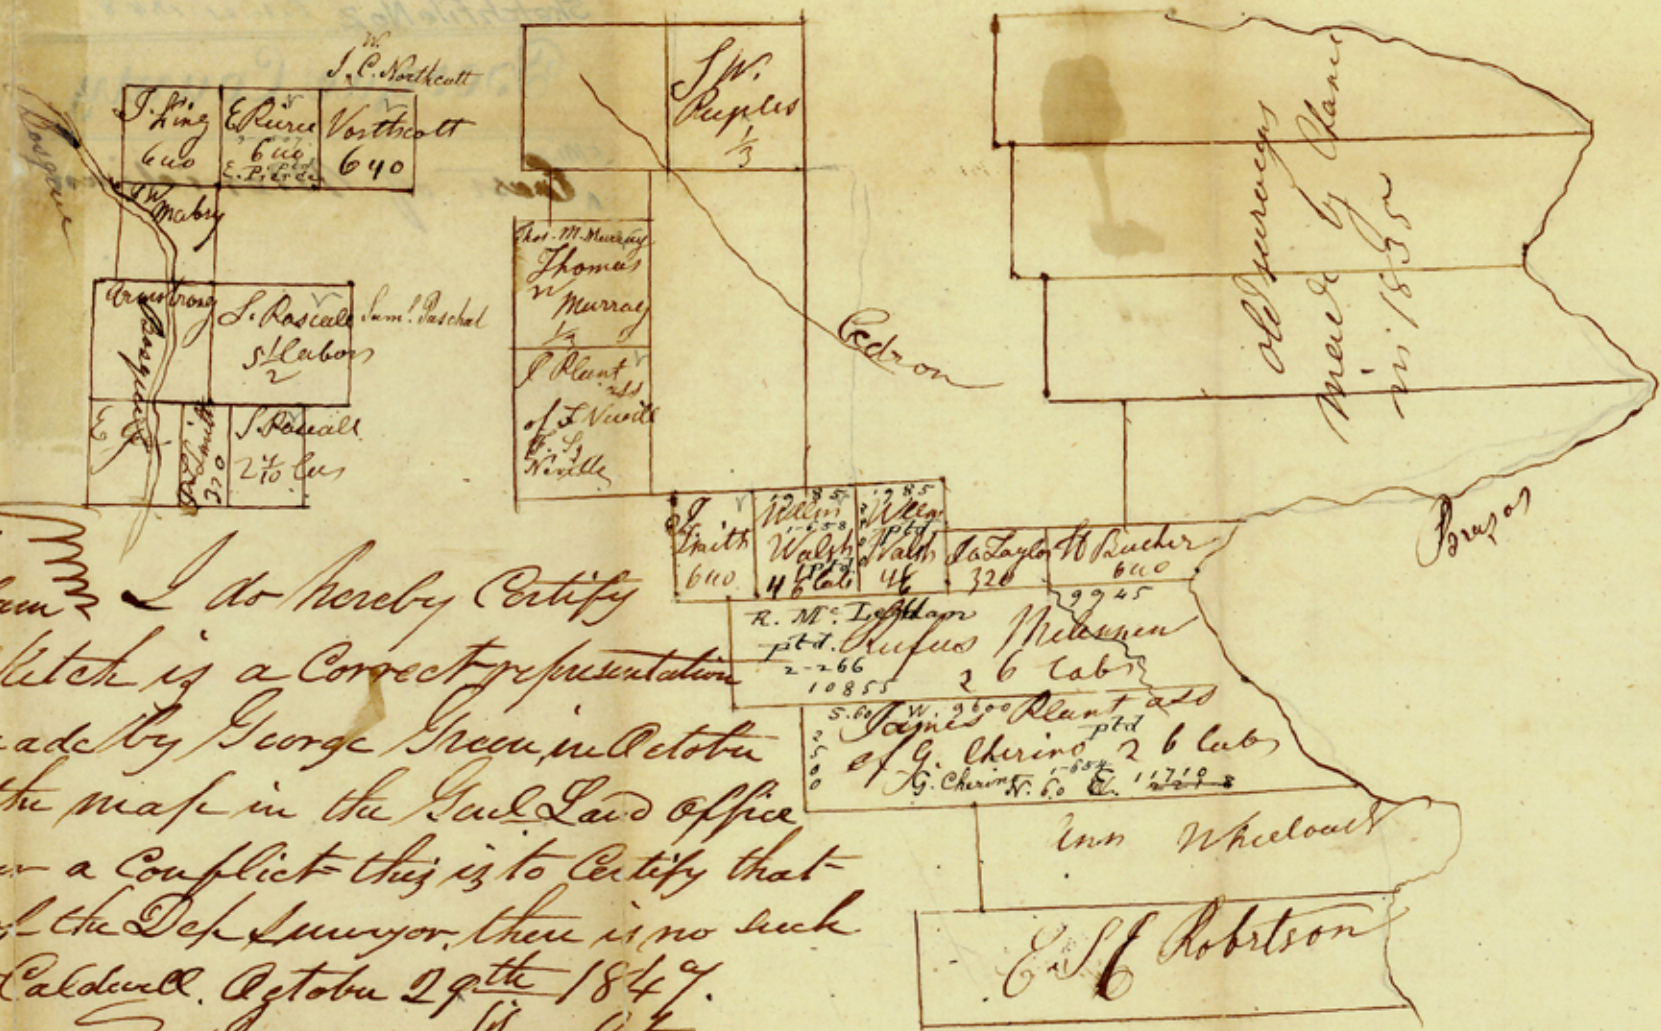 J. C. Northcott
W.
J. King
640
E Peirce
640
E. Pierce
ptd
Northcott
640
Bosque
J W
Mabry
Armstrong
Bosque
S. Pascall
5 1/2 labors
Saml. Paschal
E
Smith
320
S. Pascall
2 4/10 lus
S W.
Peuples
1/3
Thos. M. Murray
Thomas
M
Murray
1/3
J Plunt
ass
of F Nevill
F. S.
Neville
Cedron
old surveys
made by Chance
in 1835
Brazos
J
Smith
640
1985
Wilm
1-658
Walsh
ptd
4 6 labs
1985
Wilm
ptd
Walsh
46
Ja Taylor
320
H Bucher
640
9945
R. Mc. Lennan
ptd. Rufus Mclennen
2-266
10855
2 6 labs
5.60 W. 9600
James Plunt ass
ptd
of G. Cherino 2 6 labs
1-654
G. Cherino N. 60 E. 11710
2500
Ann Wheelock
E S C Robertson
I do hereby Certify
Sketch is a Correct representation
made by George Green, in October
the map in the Genl Land office
a Conflict this is to Certify that
of the Dep Surveyor, there is no such
Caldwell. October 29th 1847.